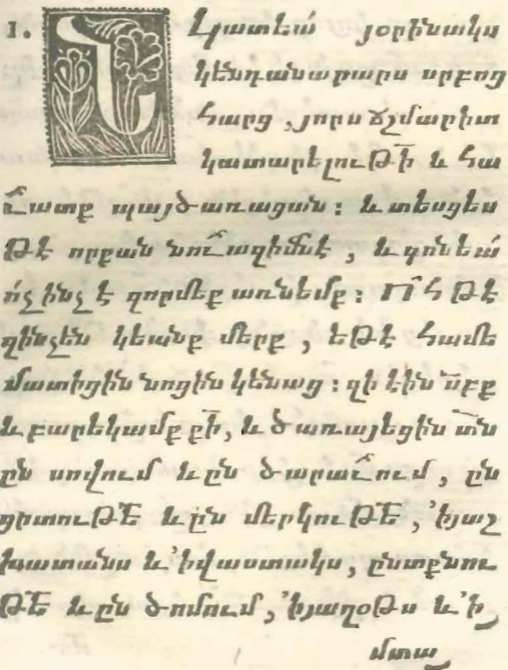 1. ՆԿատեա՛ յօրինակս
կենդանարարս սրբոց
հարց, յորս ճշմարիտ
կատարելութի՜ և հա
ւատք պայծառացան: և տեսցես
թէ որքան նուազիմնէ, և գոնեա՛
ո՛չ ինչ է զորմեք առնեմք: Ո՜հ թէ
զինչեն կեանք մերք, եթէ համե
մատիցին նոցին կենաց: զի էին ս՜բք
և բարեկամք ք՜ի, և ծառայեցին տ՜ն
ըն սովում և ըն ծարաւում, ըն
ցրտութե՜ և ըն մերկութե՜, ՚ի յաշ
խատանս և ՚ի վաստակս, ընտքնու
թե՜ և ըն ծոմում, ՚ի յաղօթս և ՚ի
մտա